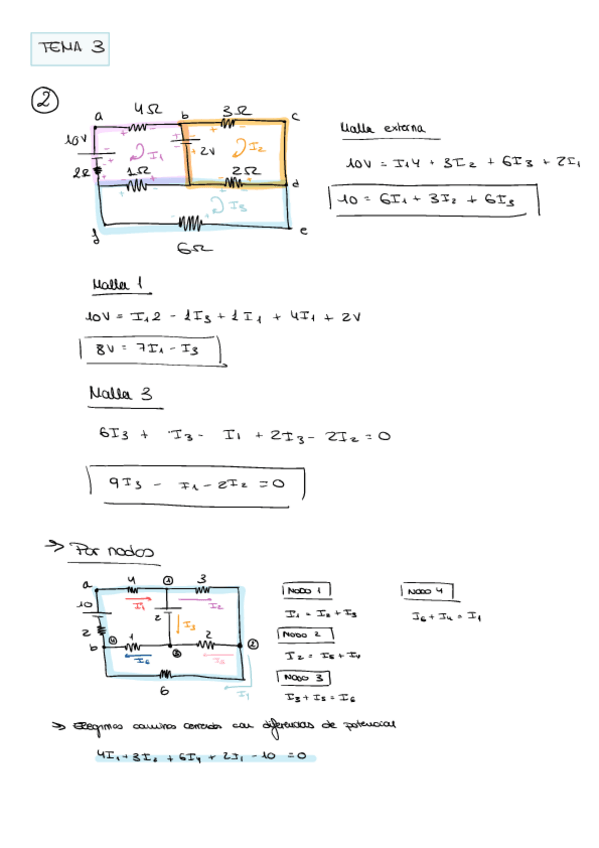 TEMA 3
2
a 4Ω b 3Ω c
10V I1 2V I2
2Ω 1Ω 2Ω d
I3
f e
6Ω
Malla externa
10V = I1 4 + 3I2 + 6I3 + 2I1
10 = 6I1 + 3I2 + 6I3
Malla 1
10V = I1 2 - 1I3 + 1I1 + 4I1 + 2V
8V = 7I1 - I3
Malla 3
6I3 + I3 - I1 + 2I3 - 2I2 = 0
9I3 - I1 - 2I2 = 0
→ Por nodos
a 4 1 3
10 I1 I2
2 2 I3
b 4 1 3 2 2
I6 I5
6 I1
NODO 1
I1 = I2 + I3
NODO 2
I2 = I5 + I4
NODO 3
I3 + I5 = I6
NODO 4
I6 + I4 = I1
→ Elegimos caminos cerrados con diferencias de potencial
4I1 + 3I2 + 6I4 + 2I1 - 10 = 0